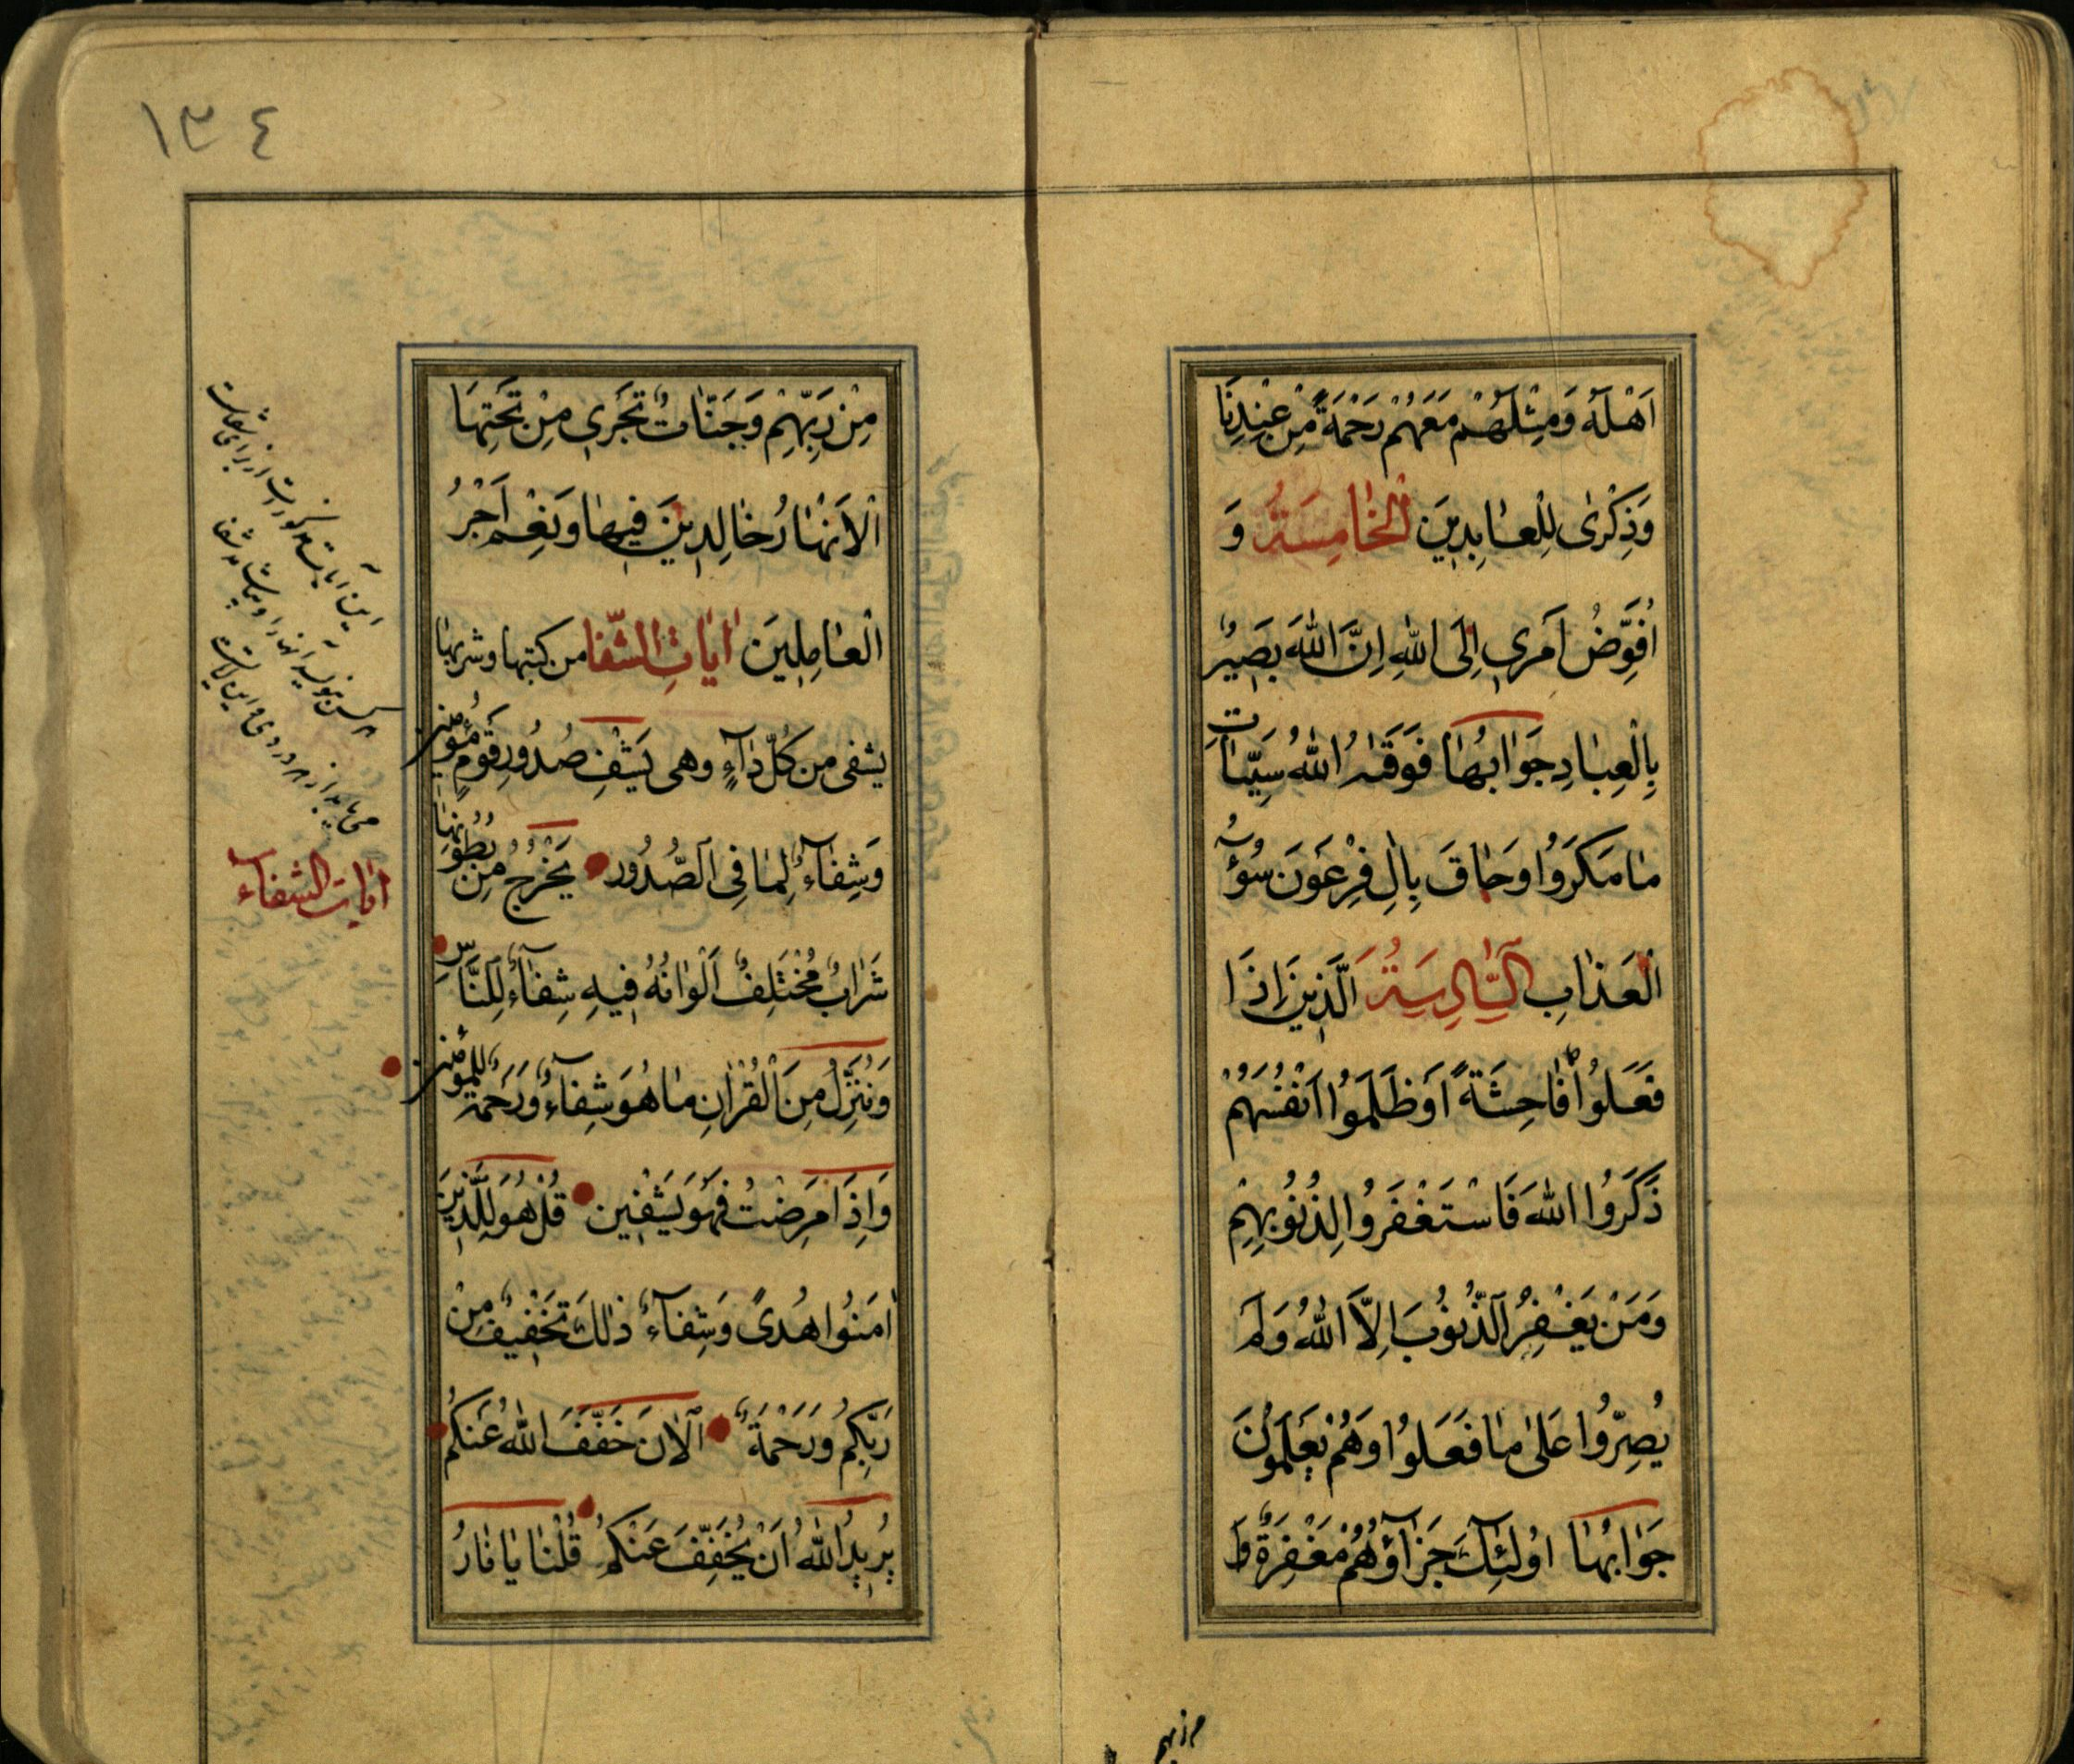 اَهْلَهُ وَمِثْلَهُمْ مَعَهُمْ رَحْمَةً مِنْ عِنْدِنَا
وَذِكْرٰى لِلْعٰابِدِينَ اَلْخٰامِسَةُ وَ
اُفَوِّضُ اَمْرِي اِلَى اللهِ اِنَّ اللهَ بَصِيرٌ
بِالْعِبٰادِ جَوٰابُهٰا فَوَقَيٰهُ اللهُ سَيِّئٰاتِ
مٰا مَكَرُوا وَحٰاقَ بِاٰلِ فِرْعَوْنَ سُوۤءُ
الْعَذٰابِ اَلسّٰادِسَةُ اَلَّذِينَ اِذَا
فَعَلُوا فٰاحِشَةً اَوْ ظَلَمُوا اَنْفُسَهُمْ
ذَكَرُوا اللهَ فَاسْتَغْفَرُوا لِذُنُوبِهِمْ
وَمَنْ يَغْفِرُ الذُّنُوبَ اِلَّا اللهُ وَلَمْ
يُصِرُّوا عَلىٰ مٰا فَعَلُوا وَهُمْ يَعْلَمُونَ
جَوٰابُهٰا اُولٰۤئِكَ جَزٰاۤؤُهُمْ مَغْفِرَةٌ
من ربهم
١٣٤
مِنْ رَبِّهِمْ وَجَنّٰاتٌ تَجْرِي مِنْ تَحْتِهَا
الْاَنْهٰارُ خٰالِدِينَ فِيهٰا وَنِعْمَ اَجْرُ
الْعٰامِلِينَ اٰيٰاتِ الشّفا من كتبها وشربها
يشفى من كُلّ دٰاۤءٍ وهى يَشْفِ صُدُورِ قَوْمٍ مُؤْمِنِينَ
وَشِفٰاۤءٌ لِمٰا فِى الصُّدُورِ يَخْرُجُ مِنْ بُطُونِهٰا
شَرٰابٌ مُخْتَلِفٌ اَلْوٰانُهُ فِيهِ شِفٰاۤءٌ لِلنّٰاسِ
وَنُنَزِّلُ مِنَ الْقُرْاٰنِ مٰا هُوَ شِفٰاۤءٌ وَرَحْمَةٌ لِلْمُؤْمِنِينَ
وَاِذَا مَرِضْتُ فَهُوَ يَشْفِينِ قُلْ هُوَ لِلَّذِينَ
اٰمَنُوا هُدىً وَشِفٰاۤءٌ ذٰلِكَ تَخْفِيفٌ مِنْ
رَبِّكُمْ وَرَحْمَةٌ اَلْاٰنَ خَفَّفَ اللهُ عَنْكُمْ
يُرِيدُ اللهُ اَنْ يُخَفِّفَ عَنْكُمْ قُلْنٰا يٰا نٰارُ
اٰيات الشفاۤء